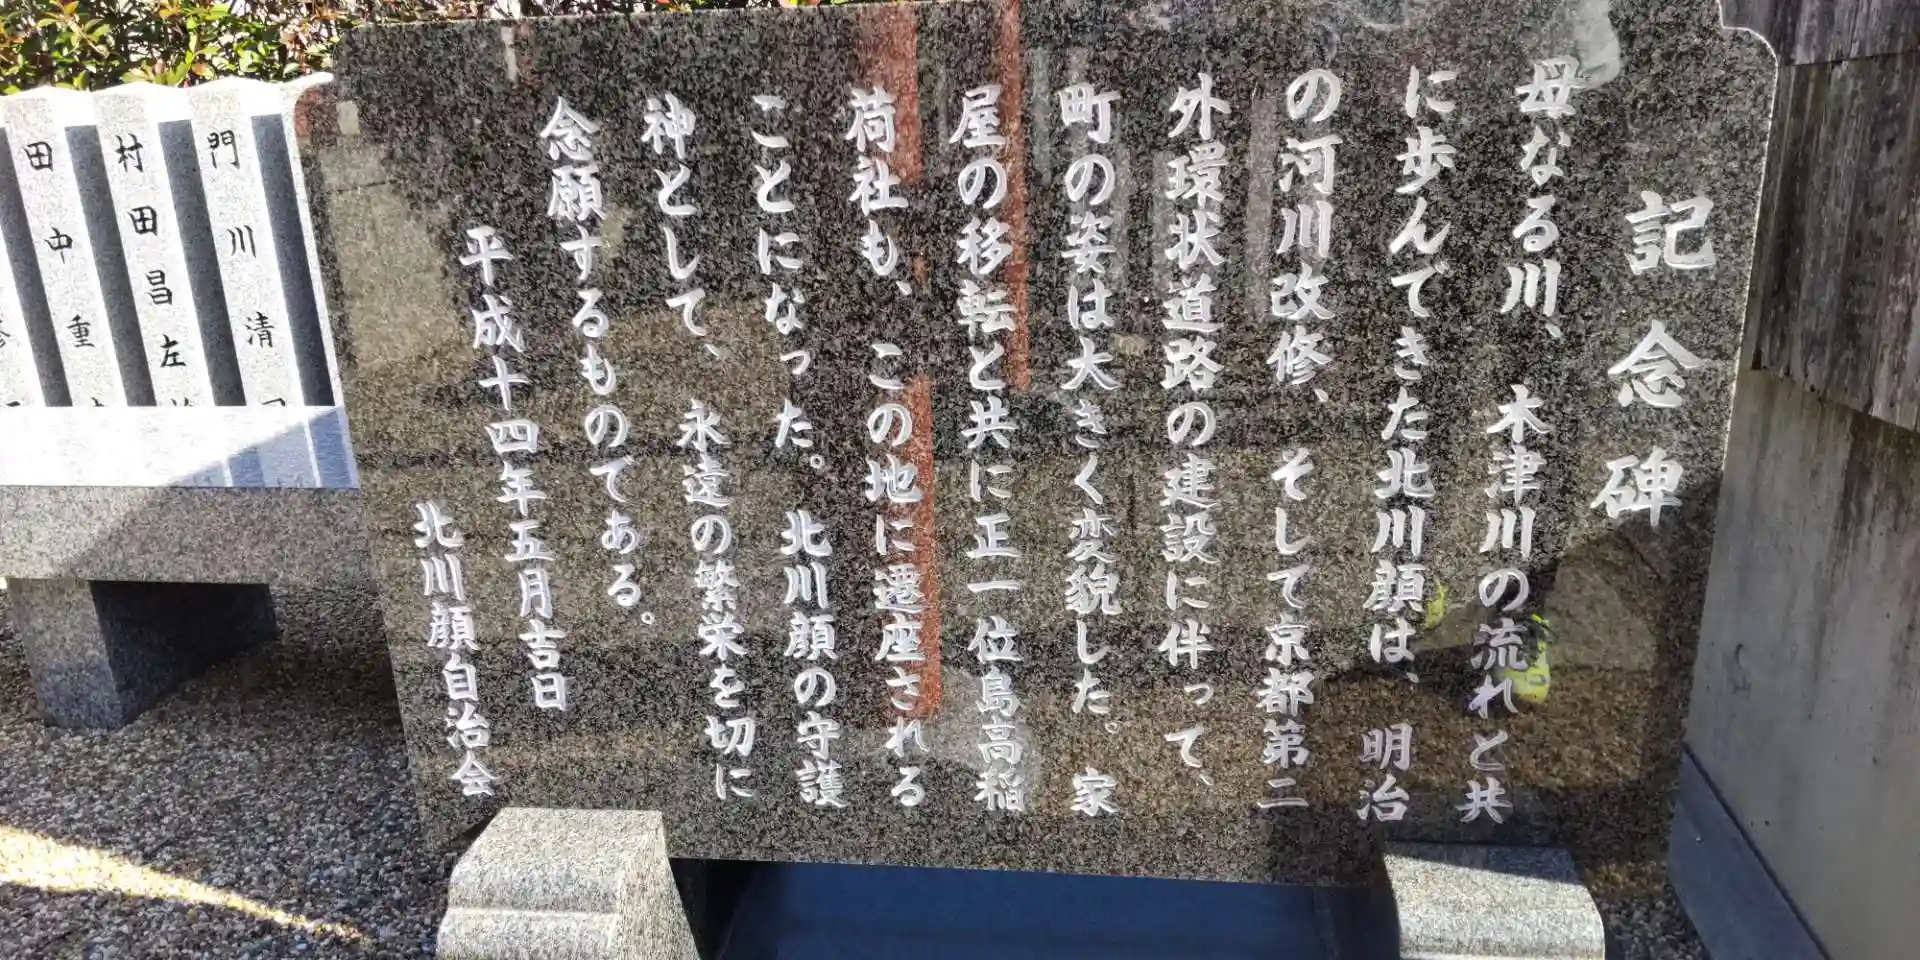 記念碑
母なる川、木津川の流れと共
に歩んできた北川顔は、明治
の河川改修、そして京都第二
外環状道路の建設に伴って、
町の姿は大きく変貌した。家
屋の移転と共に正一位島高稲
荷社も、この地に遷座される
ことになった。北川顔の守護
神として、永遠の繁栄を切に
念願するものである。
平成十四年五月吉日
北川顔自治会
門川清
村田昌左
田中重